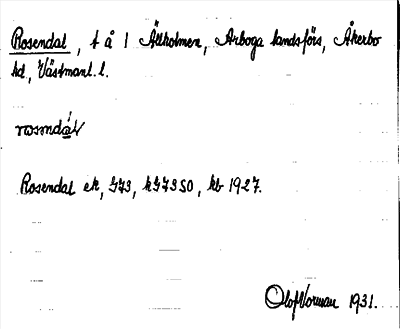 Rosendal, t å 1 Ällholmen, Arboga landsförs, Åkerbo
hd, Västmanl. l.
Rosendal ek, G73, kG73SO, kb 1927.
Olof Norman 1931.